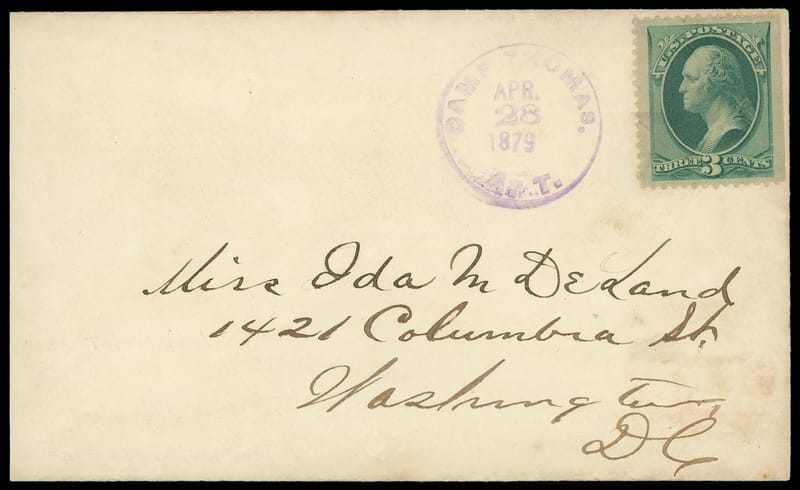 CAMP THOMAS.
APR.
28
1879
A.T.
U.S. POSTAGE
THREE 3 CENTS
Miss Ida M DeLand
1421 Columbia St.
Washington,
DC